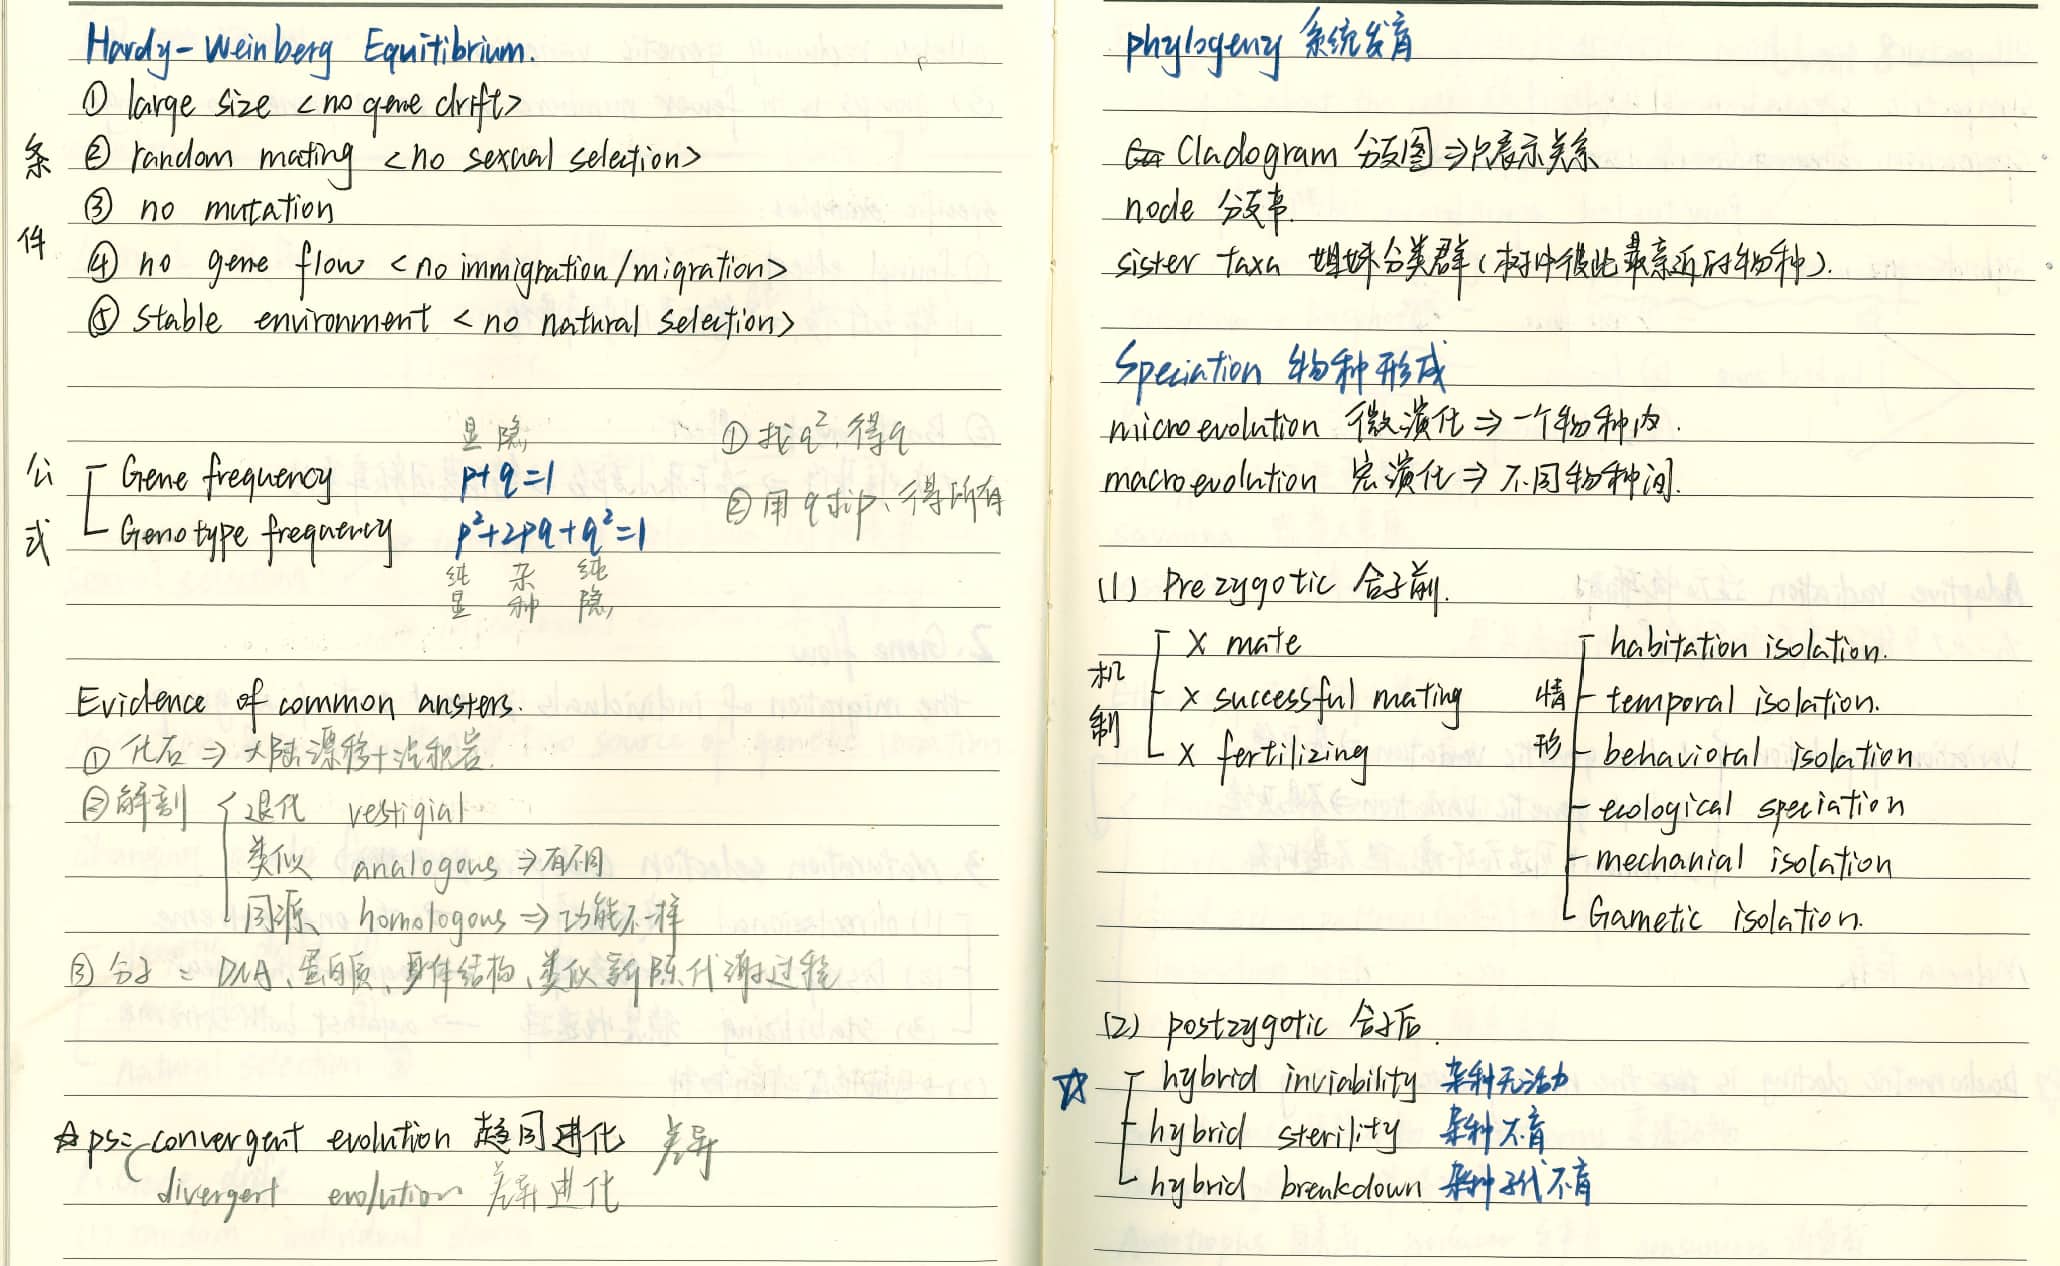 Hardy-Weinberg Equitibrium.
条件
① large size <no gene drift>
② random mating <no sexual selection>
③ no mutation
④ no gene flow <no immigration/migration>
⑤ stable environment <no natural selection>
公式
显 隐
Gene frequency p+q=1
Genotype frequency p²+2pq+q²=1
纯显 杂种 纯隐
① 找q²,得q
② 用q求p、得所有
Evidence of common ansters.
① 化石 ⇒ 大陆漂移+沉积岩.
② 解剖 退化 vestigial
类似 analogous ⇒
同源 homologous ⇒ 功能不一样
③ 分子 = DNA、蛋白质、身体结构、类似新陈代谢过程
☆ps: convergent evolution 趋同进化 差异
divergent evolution 差异进化
phylogeny 系统发育
Cladogram 分支图 ⇒只表示关系
node 分支
sister taxa 姐妹分类群(树中彼此最亲近的物种).
Speciation 物种形成
microevolution 微演化 ⇒ 一个物种内.
macroevolution 宏演化 ⇒ 不同物种间.
(1) Prezygotic 合子前.
机制
X mate
X successful mating
X fertilizing
情形
habitation isolation.
temporal isolation.
behavioral isolation
ecological speciation
mechanial isolation
Gametic isolation.
(2) postzygotic 合子后.
☆ hybrid inviability 杂种无活力
hybrid sterility 杂种不育
hybrid breakdown 杂种子代不育